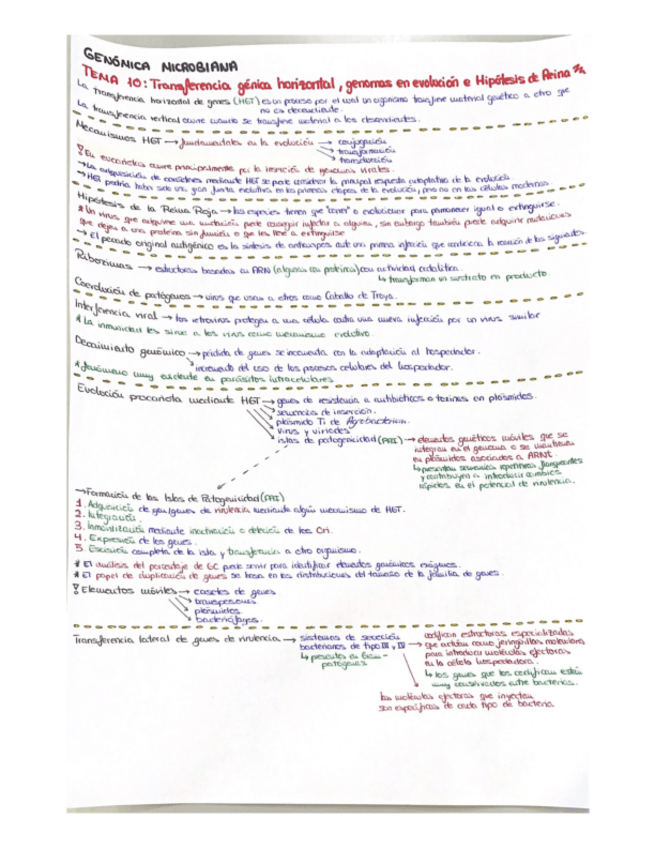 GENÓMICA MICROBIANA
TEMA 10: Transferencia génica horizontal, genomas en evolución e Hipótesis de Reina
La transferencia horizontal de genes (HGT) es un proceso por el cual un organismo transfiere material genético a otro que
no es descendiente.
La transferencia vertical ocurre cuando se transfiere material a los descendientes.
Mecanismos HGT → fundamentales en la evolución → conjugación
transformación
transducción
! En eucariotas ocurre principalmente por la inserción de genomas virales.
→ La adquisición de mediante HGT se puede considerar la principal respuesta adaptativa de la evolución.
→ HGT podría haber sido una gran fuerza evolutiva en las primeras etapas de la evolución, pero no en las células modernas
Hipótesis de la Reina Roja → las especies tienen que "correr" o evolucionar para permanecer igual o extinguirse.
* Un virus que adquiere una mutación puede conseguir infectar a alguien, sin embargo también puede adquirir mutaciones
que dejen a una proteína sin función o que les lleve a extinguirse
→ El pecado original antigénico es la síntesis de anticuerpos ante una primera infección que condiciona la reacción de las siguientes.
Ribozimas → estructuras basadas en ARN (algunas con proteína) con actividad catalítica.
↳ transforman un sustrato en producto.
Coevolución de patógenos → virus que usan a otros como Caballo de Troya.
Interferencia viral → los retrovirus protegen a una célula contra una nueva infección por un virus similar
* La inmunidad les sirve a los virus como mecanismo evolutivo.
Decaimiento genómico → pérdida de genes se incrementa con la adaptación al hospedador.
incremento del uso de los procesos celulares del hospedador.
* fenómeno muy evidente en parásitos intracelulares
Evolución procariota mediante HGT → genes de resistencia a antibióticos o toxinas en plásmidos.
secuencias de inserción.
plásmido Ti de Agrobacterium.
virus y viriones
islas de patogenicidad (PAI) → elementos genéticos móviles que se
integran en el genoma o se mantienen
en plásmidos asociados a ARNt.
↳ presentan secuencias repetitivas flanqueantes
y contribuyen a introducir cambios
rápidos en el potencial de virulencia.
→ Formación de las Islas de Patogenicidad (PAI)
1. Adquisición de gen/genes de virulencia mediante algún mecanismo de HGT.
2. Integración.
3. Inmovilización mediante inactivación o deleción de los Ori.
4. Expresión de los genes.
5. Escisión completa de la isla y transferencia a otro organismo.
* El análisis del porcentaje de GC puede servir para identificar elementos genómicos exógenos.
* El papel de duplicación de genes se basa en las distribuciones del tamaño de la familia de genes.
! Elementos móviles → casetes de genes
transposones
plásmidos
bacteriófagos.
Transferencia lateral de genes de virulencia → sistemas de secreción
bacterianos de tipo III y IV → codifican estructuras especializadas
↳ presentes en Gram -
patógenos
que actúan como jeringuillas moleculares
para introducir moléculas efectoras
en la célula hospedadora.
↳ los genes que los codifican están
muy conservados entre bacterias.
las moléculas efectoras que inyectan
son específicas de cada tipo de bacteria